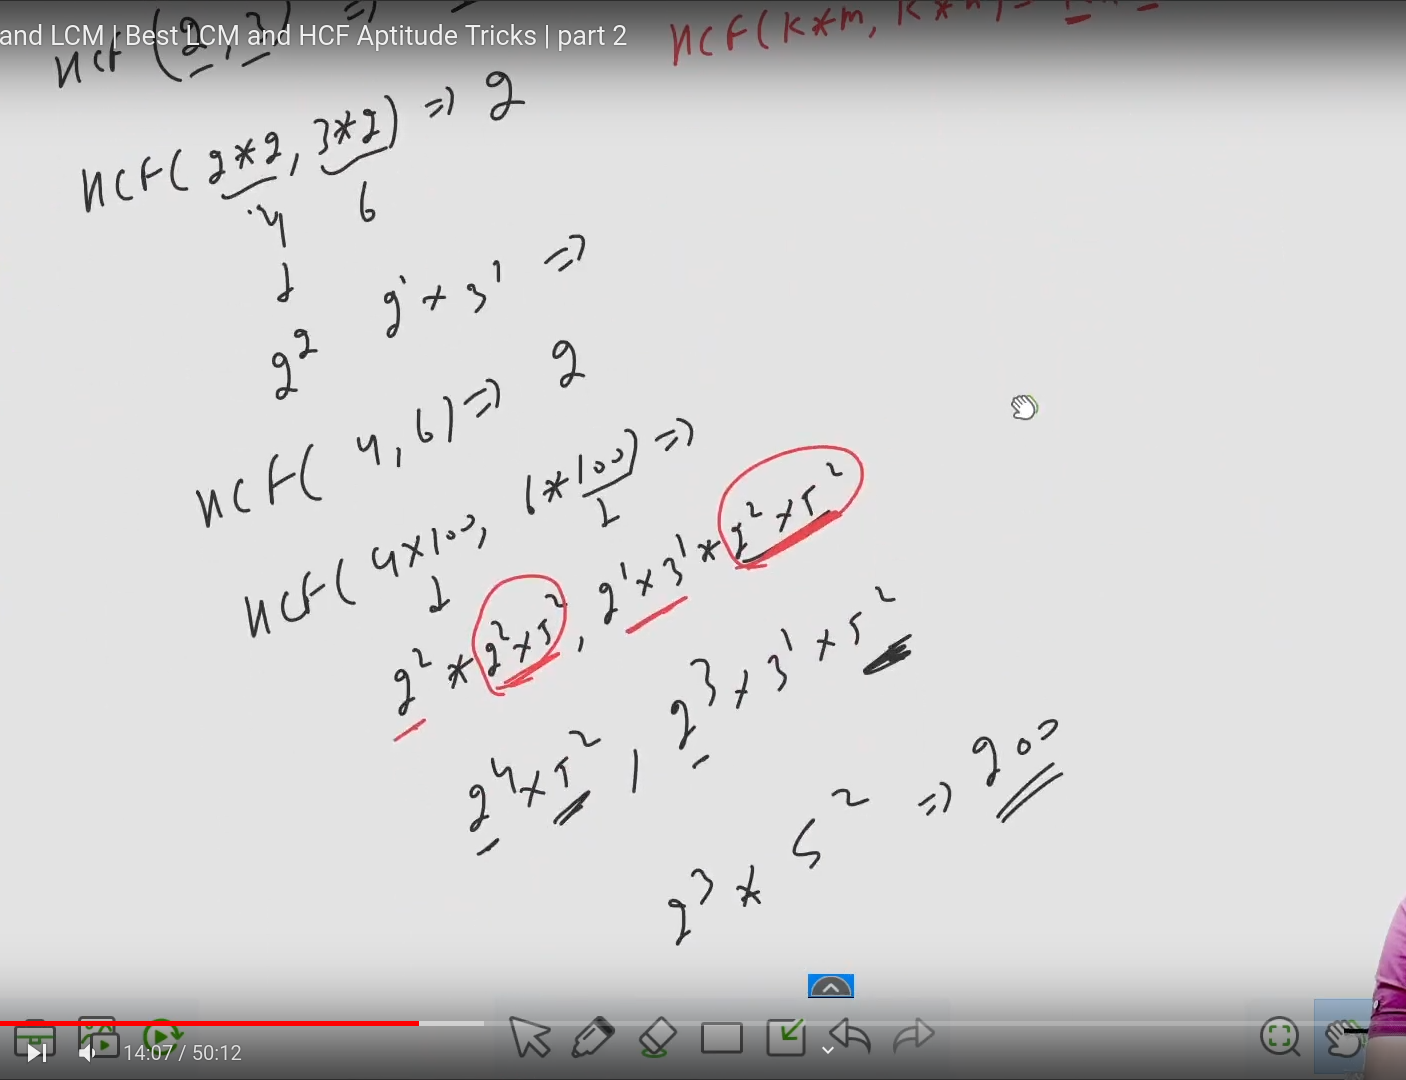 and LCM | Best LCM and HCF Aptitude Tricks | part 2
HCF (2, 3) =>
HCF(K*m, K*n) =
HCF(2*2, 3*2) => 2
4 6
2² 2¹ × 3¹ =>
HCF( 4, 6) => 2
HCF( 4×100, 6*100) =>
2² * 2²×5², 2¹×3¹ * 2²×5²
2⁴×5², 2³×3¹×5²
2³ * 5² => 200
14:07 / 50:12